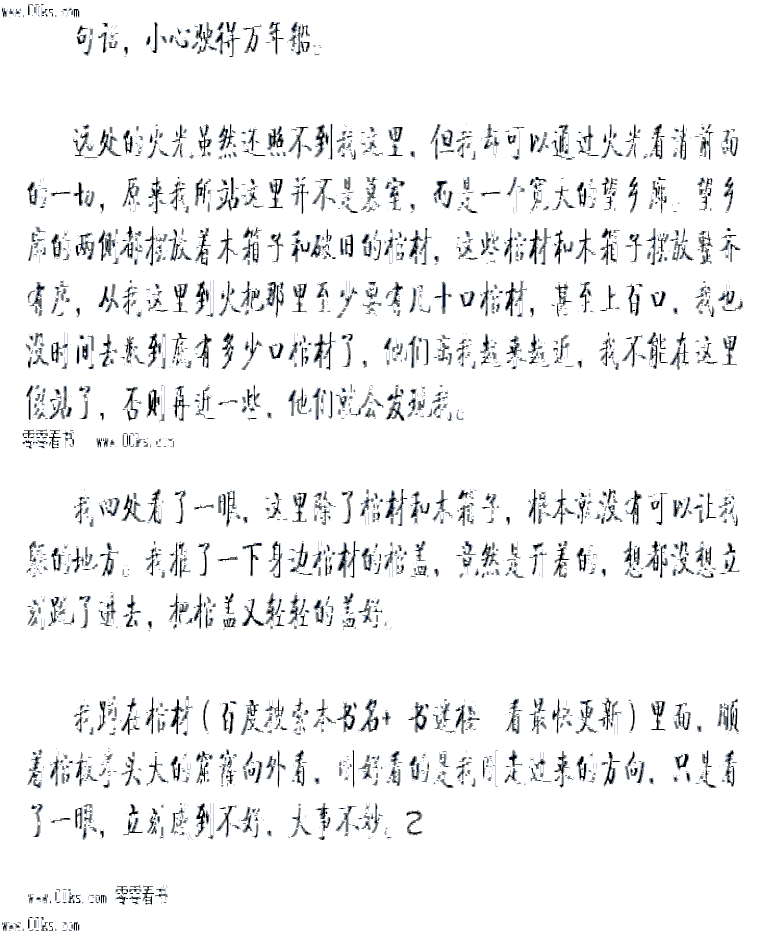 www.00ks.com
句话，小心驶得万年船。
远处的火光虽然还照不到我这里，但我却可以通过火光看清前面
的一切，原来我所站这里并不是墓室，而是一个宽大的望乡廊。望乡
廊的两侧都摆放着木箱子和破旧的棺材，这些棺材和木箱子摆放整齐
有序，从我这里到火把那里至少要有几十口棺材，甚至上百口，我也
没时间去数到底有多少口棺材了，他们离我越来越近，我不能在这里
傻站了，否则再近一些，他们就会发现我。
零零看书 www.00ks.com
我四处看了一眼，这里除了棺材和木箱子，根本就没有可以让我
躲的地方。我推了一下身边棺材的棺盖，竟然是开着的，想都没想立
刻跳了进去，把棺盖又轻轻的盖好。
我蹲在棺材（百度搜索本书名+ 书迷楼 看最快更新）里面，顺
着棺板拳头大的窟窿向外看，刚好看的是我刚走过来的方向，只是看
了一眼，立刻感到不好，大事不妙。乙
www.00ks.com 零零看书
www.00ks.com